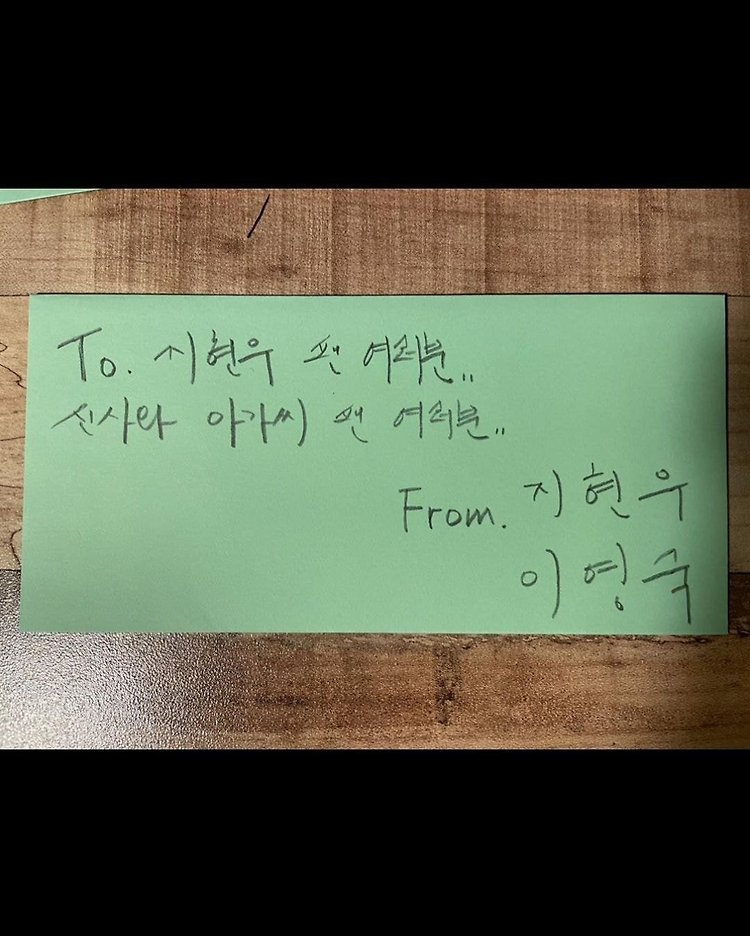 To. 지현우 팬 여러분..
신사와 아가씨 팬 여러분..
From. 지현우
이영숙